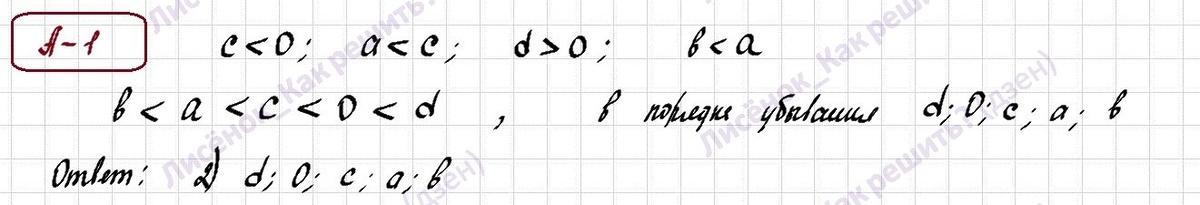 А-1 c<0; a<c; d>0; b<a
b<a<c<0<d, в порядке убывания d; 0; c; a; b
Ответ: 2) d; 0; c; a; b
Лисёнок_Как решить? (дзен)
Лисёнок_Как решить? (дзен)